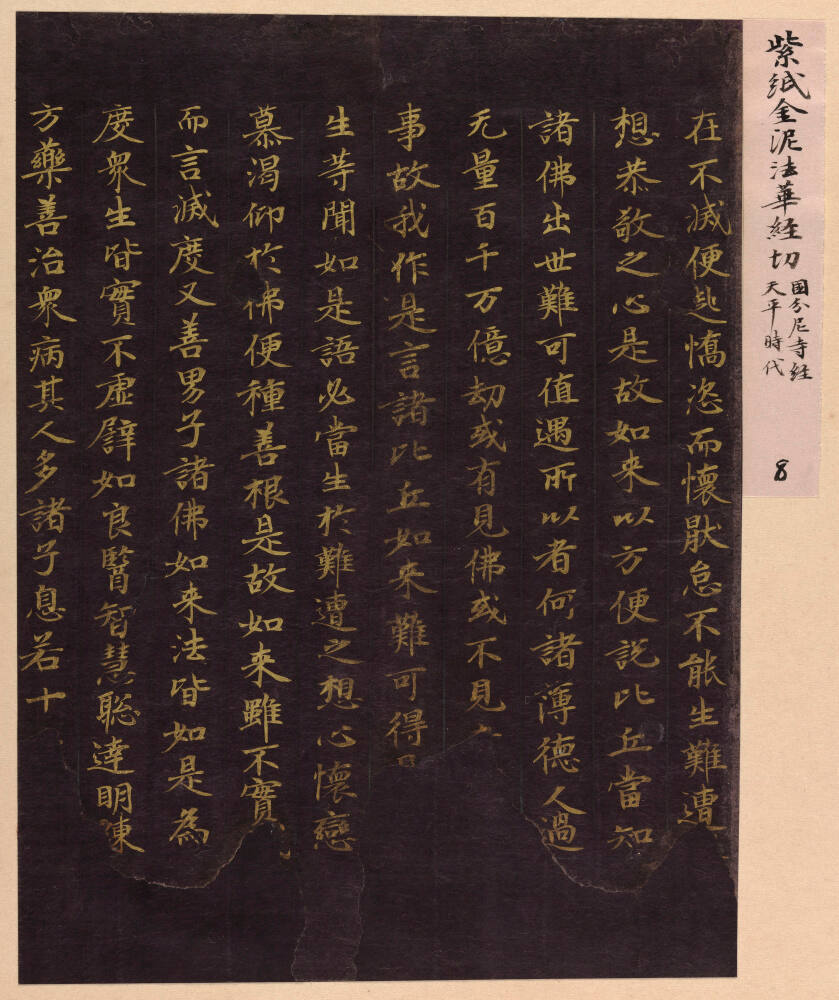 紫紙金泥法華経切
国分尼寺経
天平時代
8
在不滅便起憍恣而懷猒怠不能生難遭
想恭敬之心是故如来以方便說比丘當知
諸佛出世難可值遇所以者何諸薄德人過
无量百千万億劫或有見佛或不見
事故我作是言諸比丘如来難可得
生等聞如是語必當生於難遭之想心懷戀
慕渴仰於佛便種善根是故如来雖不實
而言滅度又善男子諸佛如来法皆如是為
度衆生皆實不虛譬如良醫智慧聡達明練
方藥善治衆病其人多諸子息若十